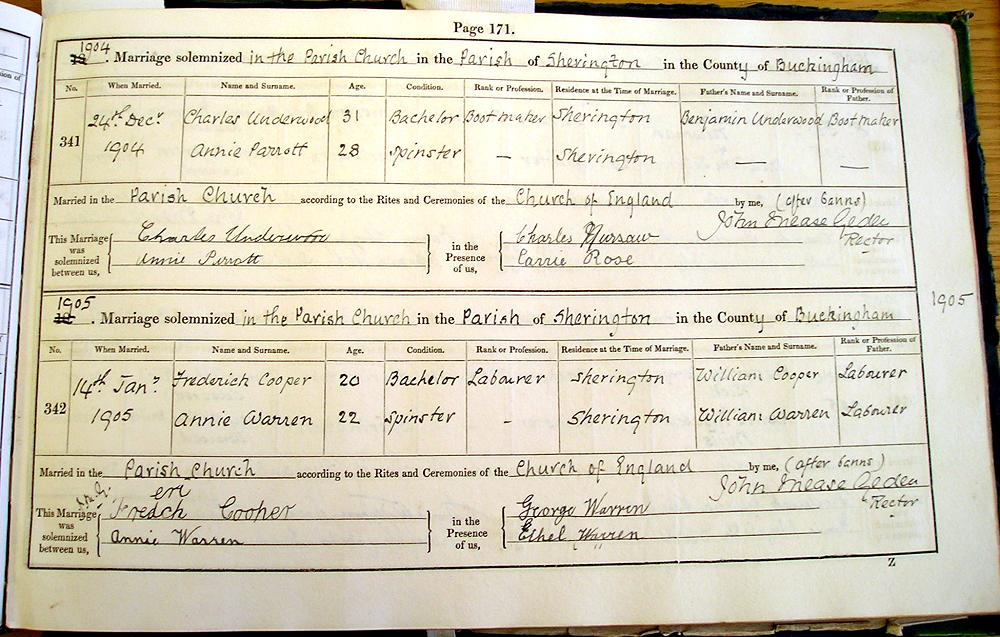 Page 171.
1904. Marriage solemnized in the Parish Church in the Parish of Sherington in the County of Buckingham
No. When Married. Name and Surname. Age. Condition. Rank or Profession. Residence at the Time of Marriage. Father's Name and Surname. Rank or Profession of Father.
341 24th Decr Charles Underwood 31 Bachelor Bootmaker Sherington Benjamin Underwood Bootmaker
1904 Annie Parrott 28 Spinster — Sherington — —
Married in the Parish Church according to the Rites and Ceremonies of the Church of England by me, (after banns)
John Mease Geden
Rector
This Marriage was solemnized between us, { Charles Underwood } in the Presence of us, { Charles
Annie Parrott Carrie Rose
1905
1905. Marriage solemnized in the Parish Church in the Parish of Sherington in the County of Buckingham
No. When Married. Name and Surname. Age. Condition. Rank or Profession. Residence at the Time of Marriage. Father's Name and Surname. Rank or Profession of Father.
342 14th Jany Frederick Cooper 20 Bachelor Labourer Sherington William Cooper Labourer
1905 Annie Warren 22 Spinster - Sherington William Warren Labourer
Married in the Parish Church according to the Rites and Ceremonies of the Church of England by me, (after banns)
John Mease Geden
Rector
eri
This Marriage was solemnized between us, { Fredck Cooper } in the Presence of us, { George Warren
Annie Warren Ethel Warren
Z